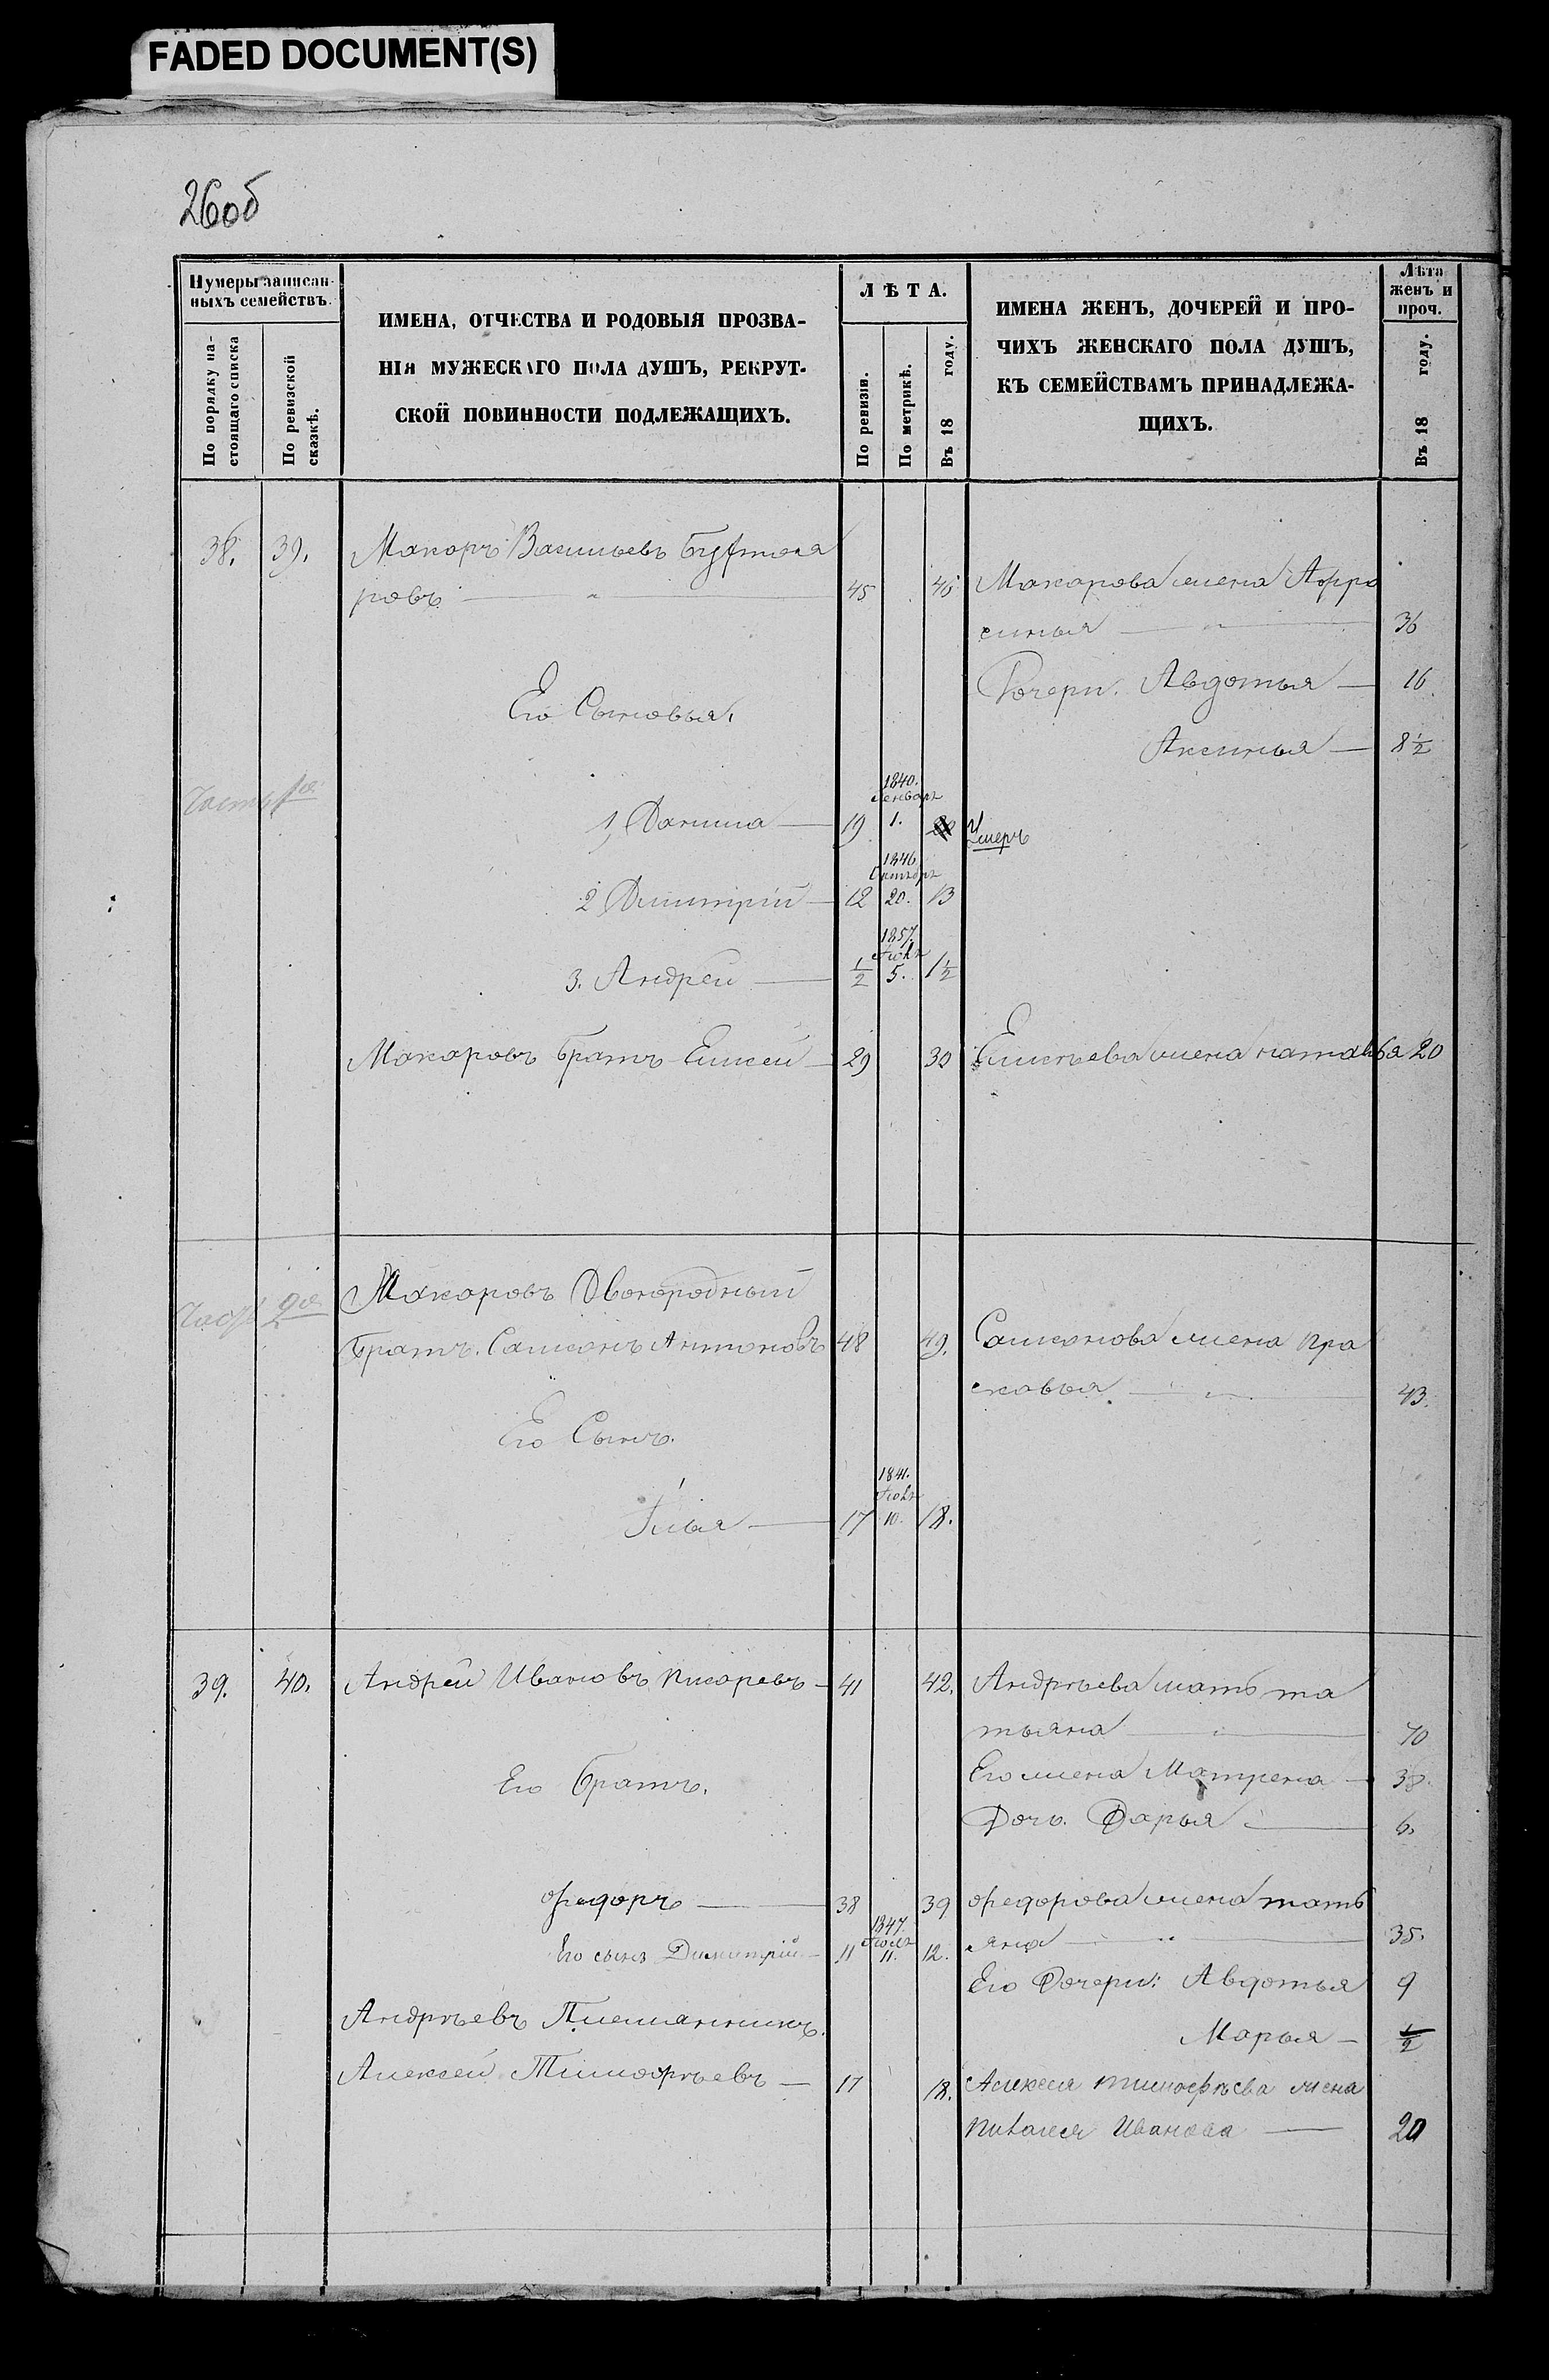 FADED DOCUMENT(S)
26об
Нумеры записан-
ныхъ семействъ.
По порядку на-
стоящаго списка
По ревизской
сказкѣ.
ИМЕНА, ОТЧЕСТВА И РОДОВЫЯ ПРОЗВА-
НІЯ МУЖЕСКАГО ПОЛА ДУШЪ, РЕКРУТ-
СКОЙ ПОВИННОСТИ ПОДЛЕЖАЩИХЪ.
ЛѢТА.
По ревизіи.
По метрикѣ.
Въ 18 году.
ИМЕНА ЖЕНЪ, ДОЧЕРЕЙ И ПРО-
ЧИХЪ ЖЕНСКАГО ПОЛА ДУШЪ,
КЪ СЕМЕЙСТВАМЪ ПРИНАДЛЕЖА-
ЩИХЪ.
Лѣта
женъ и
проч.
Въ 18 году.
38. 39. Макаръ Васильевъ
ровъ 45 46 Макарова жена Афро
синья 36
Дочери. Авдотья 16
Его Сыновья,
Аксинья 8½
Часть 1я
1840.
Генваря
1, Данила 19 1. Умеръ
1846
Октября
2 Димитрій 12 20. 13
1857.
3. Андрей ½ 5. 1½
Макаровъ братъ Елисей 29 30 Елисѣева жена Наталья 20
Часть 2я
Макаровъ Двоюродный
братъ. Самсонъ Антоновъ 48 49. Самсонова жена Пра
сковья 43.
Его Сынъ.
1841.
Илья 17 10. 18.
39. 40. Андрей Ивановъ Писаревъ 41 42. Андрѣева мать Та
тьяна 70
Его братъ. Его жена Матрена 38.
Дочь. Дарья 6.
Федоръ 38 39 Федорова жена Тать
1847.
яна 35.
Его сынъ Димитрій 11 11. 12.
Его Дочери: Авдотья 9
Андрѣевъ Племянникъ.
Марья ½
Алексей Тимофѣевъ 17 18. Алексея Тимофѣева жена
Иванова 20